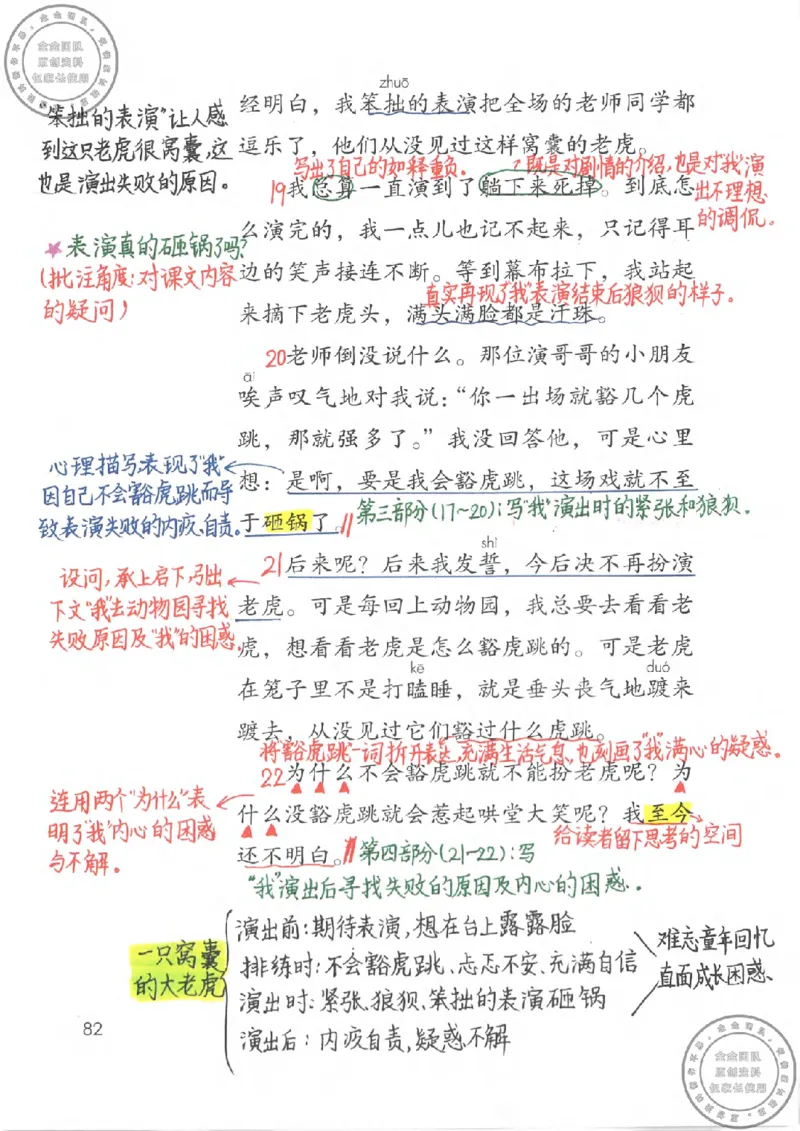 企企团队
原创资料
仅家长使用
zhuō
经明白，我笨拙的表演把全场的老师同学都
逗乐了，他们从没见过这样窝囊的老虎。
"笨拙的表演"让人感
到这只老虎很窝囊，这
也是演出失败的原因。
写出了自己的如释重负。
既是对剧情的介绍，也是对"我"演
出不理想
的调侃。
19我总算一直演到了躺下来死掉。到底怎
么演完的，我一点儿也记不起来，只记得耳
边的笑声接连不断。等到幕布拉下，我站起
来摘下老虎头，满头满脸都是汗珠。
★表演真的砸锅了吗？
(批注角度：对课文内容
的疑问)
真实再现了"我"表演结束后狼狈的样子。
20老师倒没说什么。那位演哥哥的小朋友
āi
唉声叹气地对我说：“你一出场就豁几个虎
跳，那就强多了。”我没回答他，可是心里
想：是啊，要是我会豁虎跳，这场戏就不至
于砸锅了。
心理描写表现了"我"
因自己不会豁虎跳而导
致表演失败的内疚、自责。
第三部分(17~20)：写"我"演出时的紧张和狼狈。
shì
21后来呢？后来我发誓，今后决不再扮演
老虎。可是每回上动物园，我总要去看看老
虎，想看看老虎是怎么豁虎跳的。可是老虎
kē
duó
在笼子里不是打瞌睡，就是垂头丧气地踱来
踱去，从没见过它们豁过什么虎跳。
设问，承上启下，引出
下文"我"去动物园寻找
失败原因及"我"的困惑。
将"豁虎跳"一词拆开表达，充满生活气息，也刻画了"我"满心的疑惑。
22为什么不会豁虎跳就不能扮老虎呢？为
什么没豁虎跳就会惹起哄堂大笑呢？我至今
还不明白。
连用两个"为什么"表
明了"我"内心的困惑
与不解。
给读者留下思考的空间
第四部分(21-22)：写
"我"演出后寻找失败的原因及内心的困惑。
一只窝囊
的大老虎
演出前：期待表演，想在台上露露脸
排练时：不会豁虎跳、忐忑不安、充满自信
演出时：紧张、狼狈、笨拙的表演砸锅
演出后：内疚自责，疑惑不解
难忘童年回忆
直面成长困惑
82
企企团队
原创资料
仅家长使用